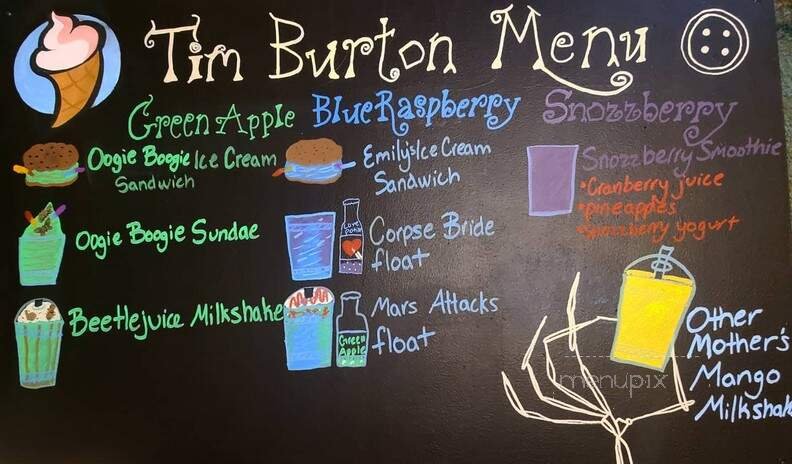 Tim Burton Menu
Green Apple
Oogie Boogie Ice Cream
Sandwich
Oogie Boogie Sundae
Beetlejuice Milkshake
Blue Raspberry
Emily's Ice Cream
Sandwich
Love
Potion
Corpse Bride
float
Green
Apple
Mars Attacks
float
Snozzberry
Snozzberry Smoothie
•Cranberry juice
•pineapples
•Snozzberry yogurt
Other
Mother's
Mango
Milkshak
menupix